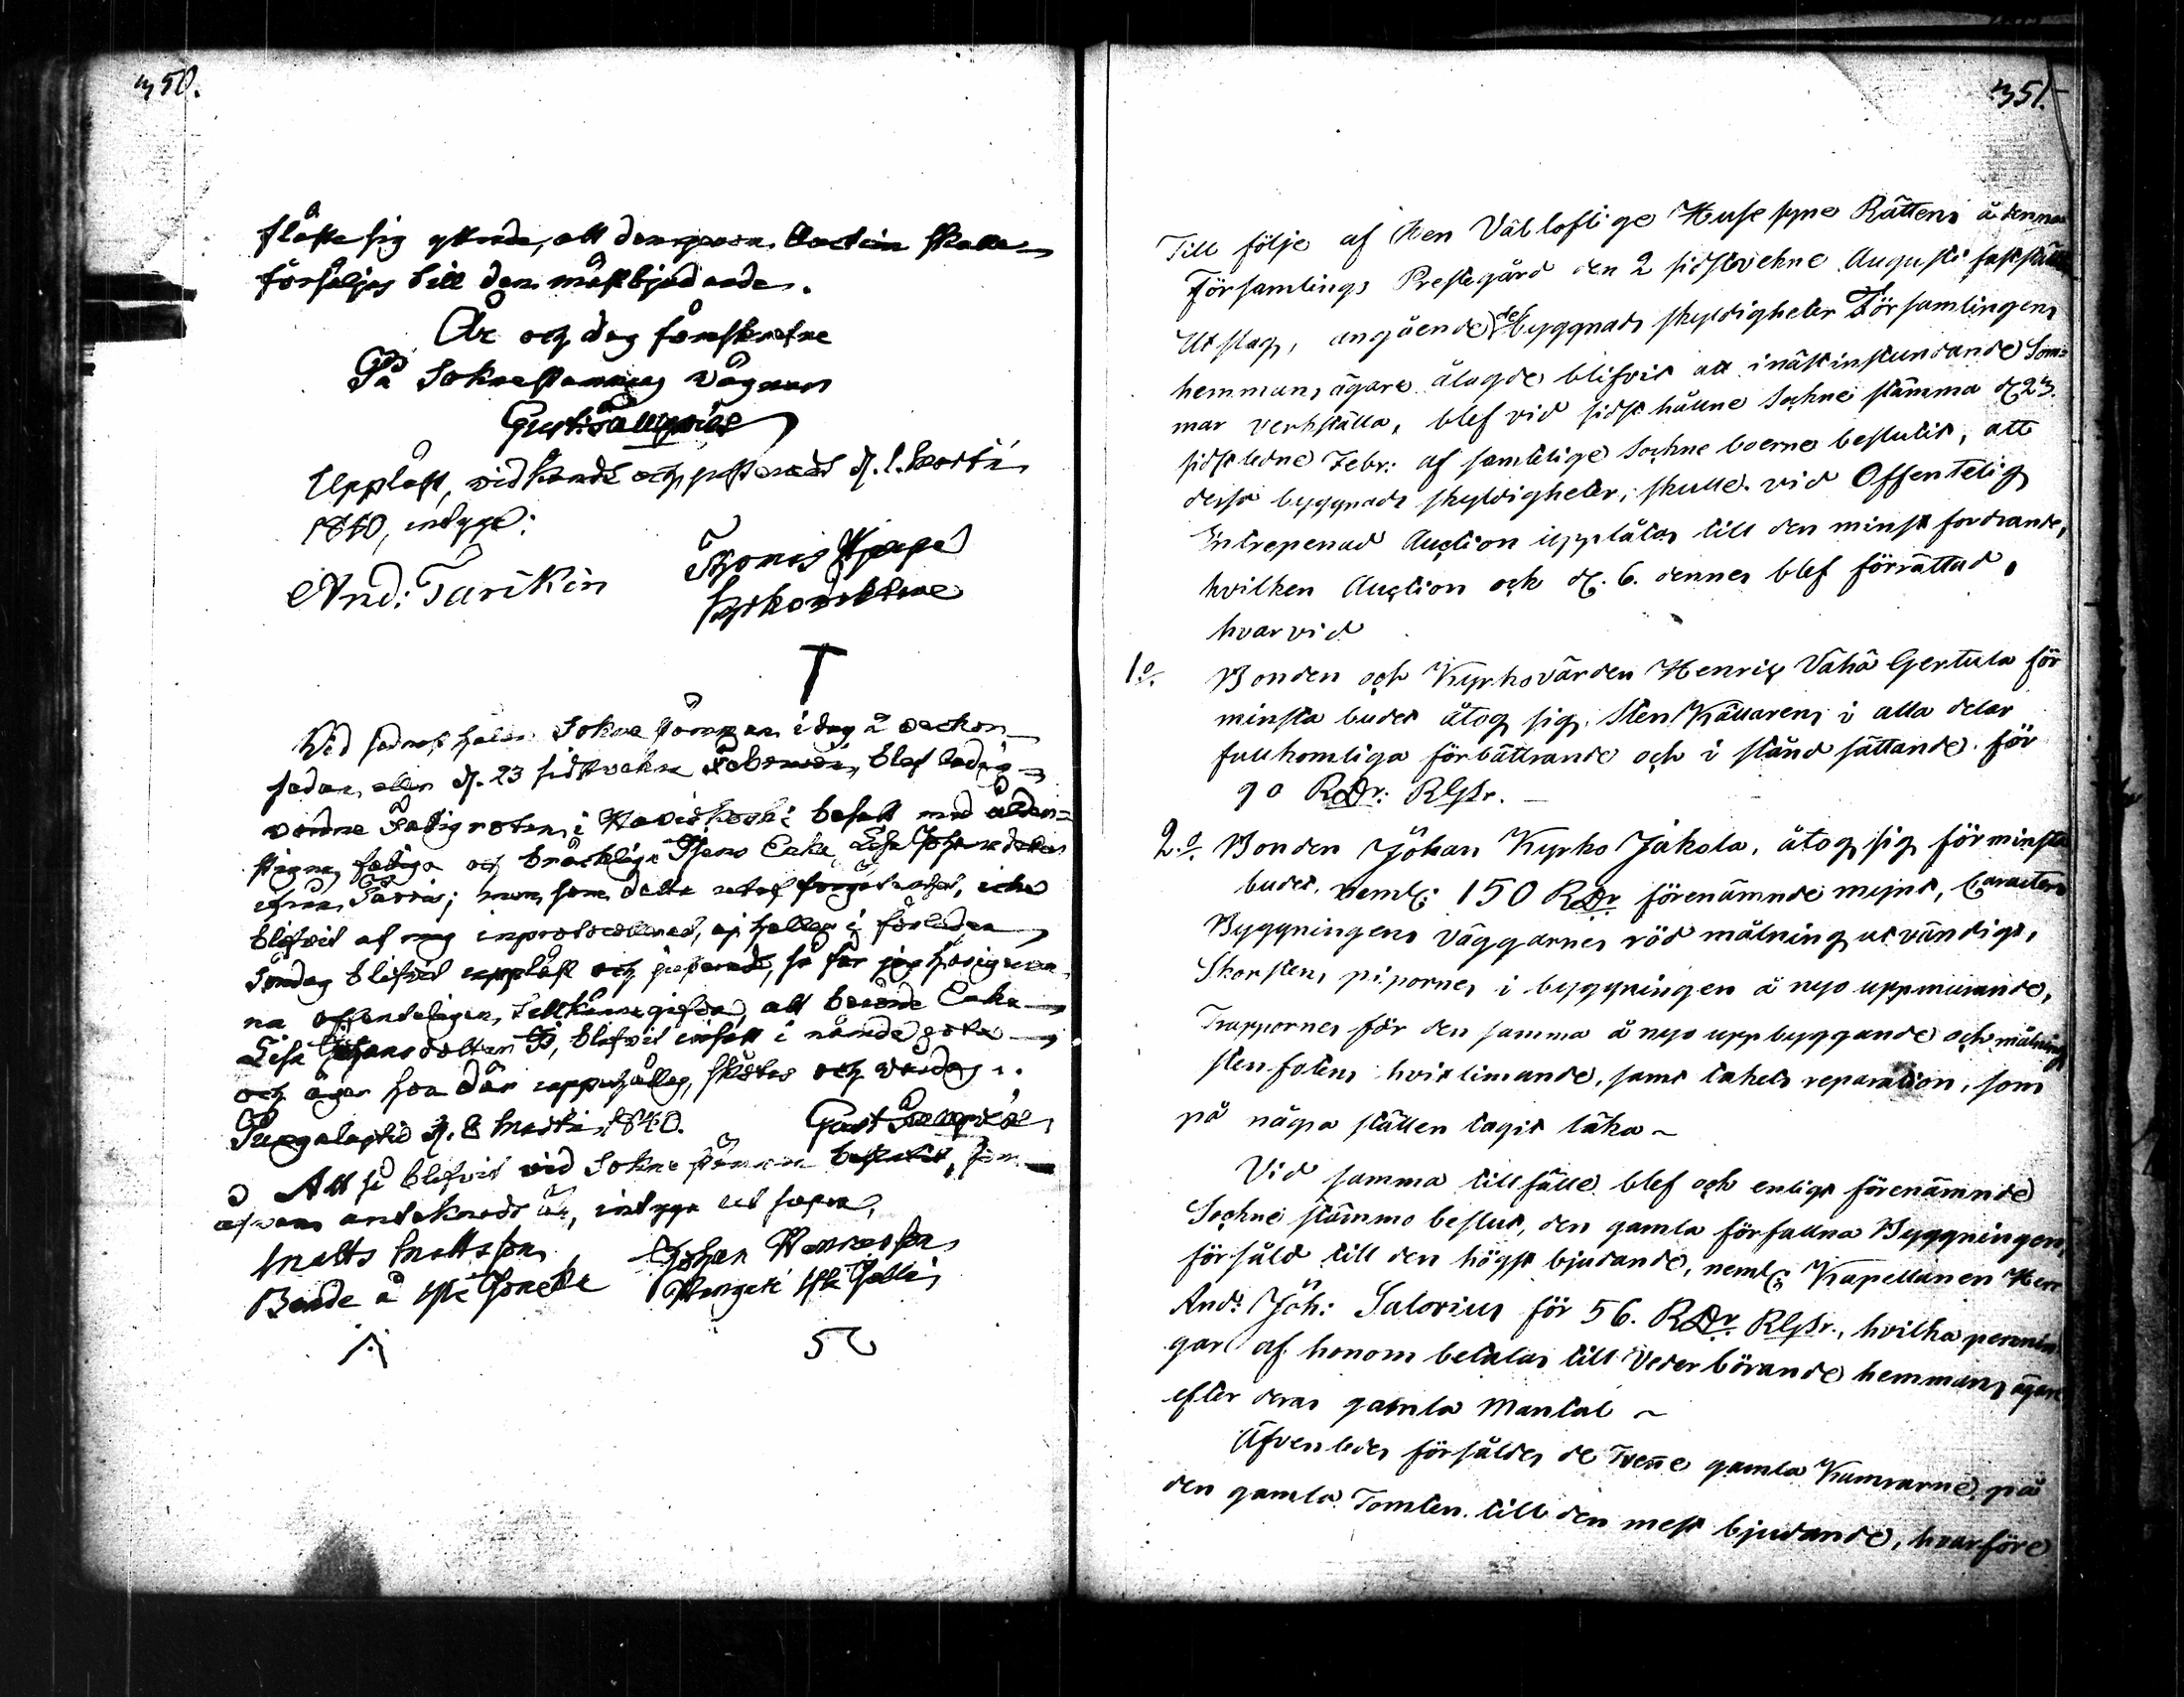 350.
sig yttrade, att denna Auction skulle
försäljas till den mäst bjudande.
År och dag föreskrefne
På Soknestämmans vägnar
Gust:
Uppläst, vidkändt och justeradt d. 1. Martii
1840, intyga:
And: Tarikin
Vid sednast hålne Sokne stämman i dag 2 veckor
sedan, eller d. 23 sidstvekne Februarii, blef ledig
vordne Fattigroten i besatt med ålder-
stigna, fattiga och bräckliga Enka, Lisa Johansdotter
men, som detta utaf icke
blifvit af mig inprotocollerad, ej heller i förleden
Söndag blifvit uppläst och justerade, så får jag härigenom
offenteligen tillkännagifva, att berörde Enka
Lisa Johansdotter blifvit insatt i nämnde rote
och äger hon där uppehållas, skötas och vårdas.
d. 8 Martii 1840. Gust
Att så blifvit vid Sokne stämman beslutit, som
ofvan antecknadt är, intyga
Matts Mattsson Johan Henricsson
Bonde å
351.
Till följe af den Välloflige Husesyne Rättens å denna
Församlings Prestegård den 2 sidstvekne Augusti fastställde
Utslag, angående de byggnads skyldigheter Församlingens
hemmans ägare ålagde blifvit att inästinstundande Som-
mar verkställa, blef vid sidst hållne Sockne stämma d. 23
sidstledne Febr: af samtelige Sockne boerne beslutit, att
dessa byggnads skyldigheter, skulle vid Offentelig
Entrepenad Auction upplåtas till den minst fordrande,
hvilken Auction ock d. 6. dennes blef förrättad,
hvarvid
1o. Bonden och Kyrkovärden Henric Vähä Gertula för
minsta budet åtog sig, Sten Källarens i alla delar
fullkomliga förbättrande och i stånd sättande för
90 RDr: RGSr.
2o. Bonden Johan Kyrko Jäkola, åtog sig för minsta
budet, neml: 150 RDr förenämnde mynt,
Byggningens väggarnes rödmålning utvändigt,
Skorstens pipornes i byggningen å nyo uppmurande,
Trappornes för den samma å nyo uppbyggande och målning,
stenfotens hvitlimande, samt takets reparation, som
på några ställen tagit läka ~
Vid samma tillfälle blef ock enligt förenämnde
Sockne stämmo beslut, den gamla förfallna Byggningen,
försåld till den högst bjudande, neml: Kapellanen Herr
And: Joh: Salorius för 56. RDr. RGSr., hvilka pennin-
gar af honom betalas till Vederbörande hemmans ägare
efter deras gamla Mantal ~
Äfvenledes försåldes de Trenne gamla Kamrarne på
den gamla Tomten till den mest bjudande, hvarföre